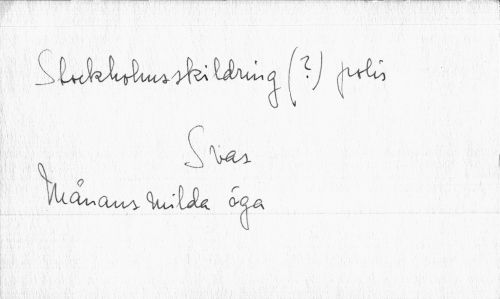 Stockholmsskildring (?) polis
Svas
Månans milda öga